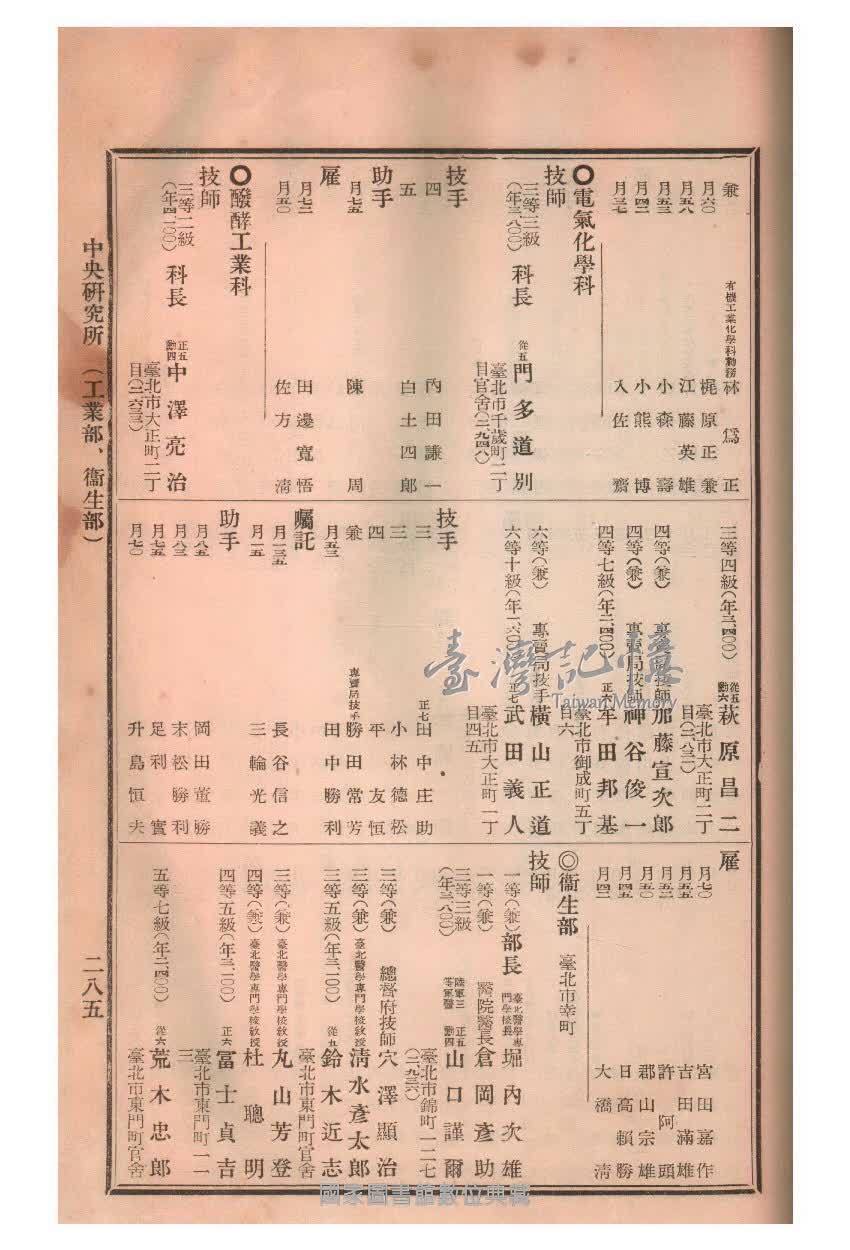 兼 有機工業化學科勤務 林爲正
月六〇 梶原正兼
月五八 江藤英雄
月五三 小森壽
月四二 小熊博
月三七 入佐齋
〇電氣化學科
技師
三等三級(年三、八〇〇) 科長 從五 門多道別
臺北市千歲町二丁目官舍(二、九四八)
技手
四 內田謙一
五 白土四郎
助手
月七五 陳周
雇
月七二 田邊寬悟
月五〇 佐方淸
〇醱酵工業科
技師
三等二級(年四、一〇〇) 科長 正五勳四 中澤亮治
臺北市大正町二丁目(二、六三三)
三等四級(年三、四〇〇) 從五勳六 萩原昌二
臺北市大正町二丁目(二、八三二)
四等(兼) 專賣局技師 加藤宣次郎
四等(兼) 專賣局技師 神谷俊一
四等七級(年二、四〇〇) 正六 牟田邦基
臺北市御成町五丁目六
六等(兼) 專賣局技手 橫山正道
六等十級(年一、六〇〇) 正七 武田義人
臺北市大正町一丁目四五
技手
三 正七 田中庄助
三 小林德松
四 平友恒
兼 專賣局技手 勝田常芳
月五三 田中勝利
囑託
月一三五 長谷信之
月一五 三輪光義
助手
月八五 岡田董勝
月八三 末松勝利
月七五 足利實
月七〇 升島恒夫
雇
月七〇 宮田嘉作
月五五 吉田滿雄
月五二 許阿頭
月五〇 郡山宗雄
月四五 日高賴勝
月四二 大橋淸
◎衞生部 臺北市幸町
技師
一等(兼) 部長 臺北醫學專門學校長 堀內次雄
一等(兼) 醫院醫長 倉岡彥助
三等三級(年三、八〇〇) 陸軍三等軍醫 正五勳四 山口謹爾
臺北市錦町一二七(二、九三六)
三等(兼) 總督府技師 穴澤顯治
三等(兼) 臺北醫學專門學校敎授 淸水彥太郞
三等五級(年三、一〇〇) 從五 鈴木近志
臺北市東門町官舍
三等(兼) 臺北醫學專門學校敎授 丸山芳登
四等(兼) 臺北醫學專門學校敎授 杜聰明
四等五級(年三、一〇〇) 正六 富士貞吉
臺北市東門町一一三
五等七級(年二、四〇〇) 從六 荒木忠郞
臺北市東門町官舍
中央硏究所(工業部、衞生部)
二八五
臺灣記憶
Taiwan Memory
國家圖書館數位典藏